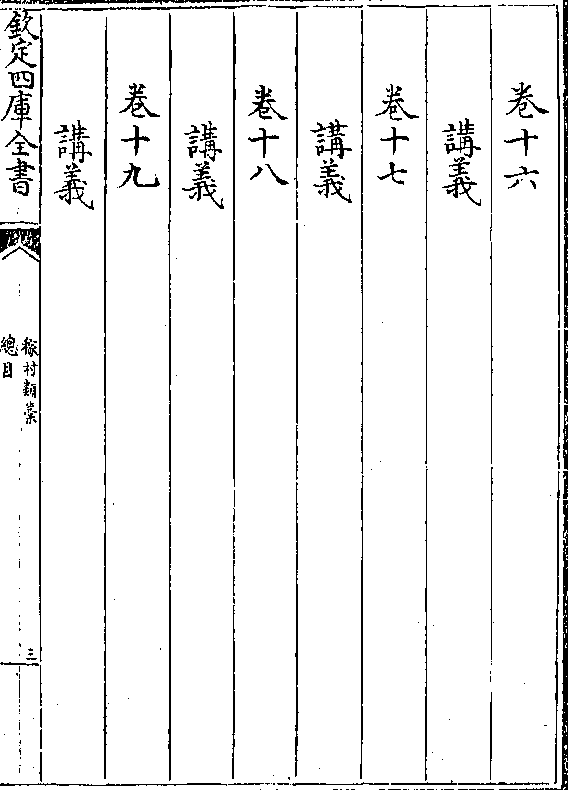 卷十六
講義
卷十七
講義
卷十八
講義
卷十九
講義
欽定四庫全書
稼村類藁
總目
三